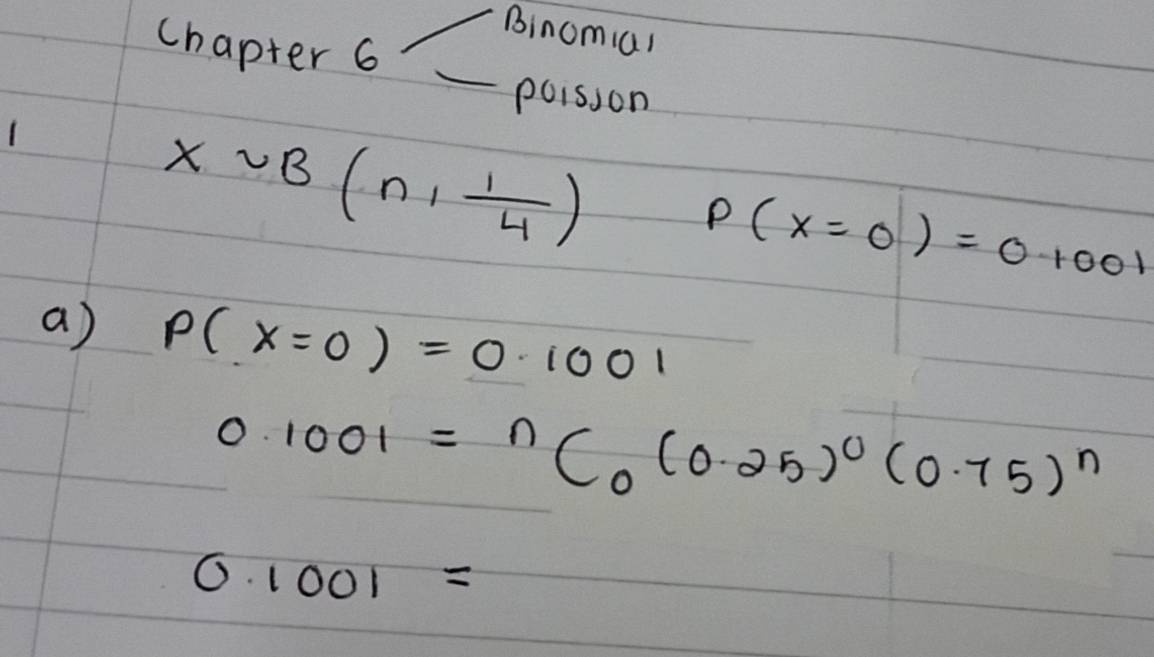 Chapter 6
Binomial
poisson
1 X ~ B (n, 1/4) P(X=0) = 0.1001
a) P(X=0) = 0.1001
0.1001 = ⁿC₀ (0.25)⁰ (0.75)ⁿ
0.1001 =